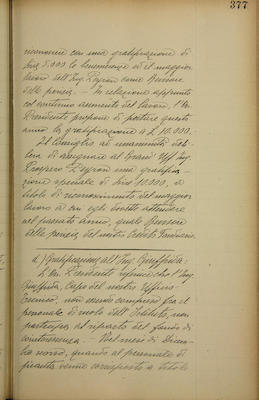 377
numerare con una gratificazione di
lire 5.000 le benemerenze ed il maggior
lavoro dell'Ing. Peyron come Revisore
delle perizie. - In relazione appunto
col continuo aumento del lavoro, l'On.
Presidente propone di portare questo
anno la gratificazione a £ 10.000.
Il Consiglio ad unanimità deli-
bera di assegnare al Grand' Uff. Ing.
Prospero Peyron una gratifica-
zione speciale di lire 10.000, a
titolo di riconoscimento del maggior
lavoro da esso dovuto
nel passato anno, quale Revisore
delle perizie del nostro Credito Fondiario.
d) Gratificazione all'Ing. Giuffrida:
L'On. Presidente riferisce che l'Ing.
Giuffrida, Capo del nostro Ufficio
Tecnico, non essendo compreso fra il
personale di ruolo dell'Istituto, non
partecipa al riparto del fondo di
cointeressenza. - Nel mese di Dicem-
bre scorso, quando al personale di
pianta venne corrisposto a titolo